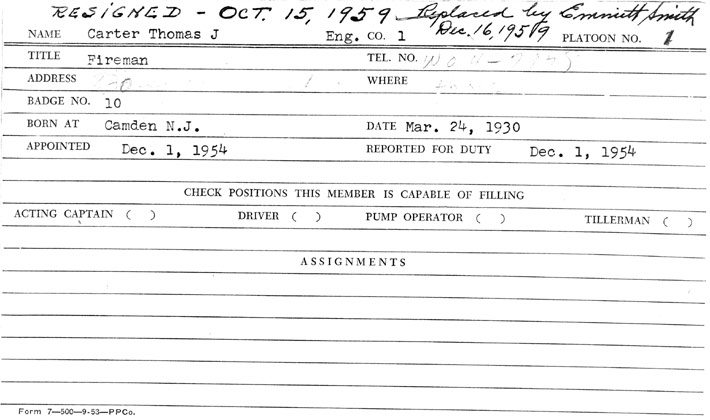 RESIGNED - OCT. 15, 1959 Replaced by Emmitt Smith
Dec. 16, 1959
NAME Carter Thomas J Eng. CO. 1 PLATOON NO. 1
TITLE Fireman TEL. NO.
ADDRESS WHERE
BADGE NO. 10
BORN AT Camden N.J. DATE Mar. 24, 1930
APPOINTED Dec. 1, 1954 REPORTED FOR DUTY Dec. 1, 1954
CHECK POSITIONS THIS MEMBER IS CAPABLE OF FILLING
ACTING CAPTAIN ( ) DRIVER ( ) PUMP OPERATOR ( ) TILLERMAN ( )
ASSIGNMENTS
Form 7—500—9-53—PPCo.